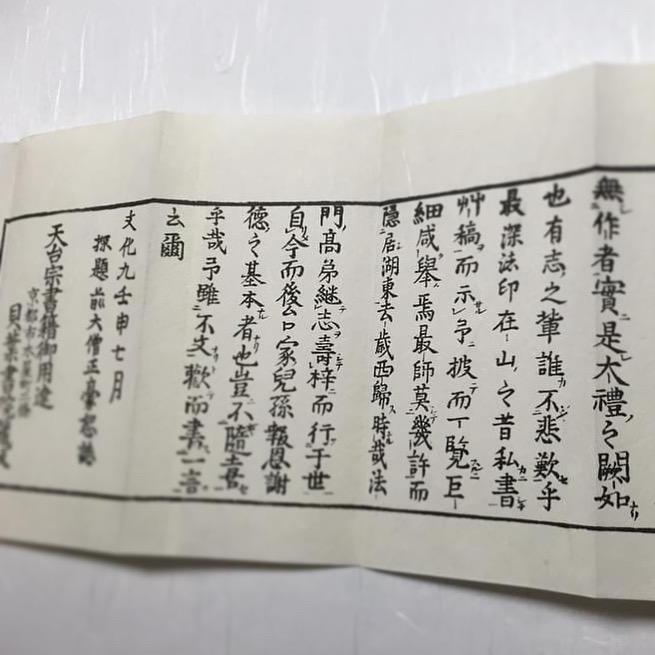 無作者實是大禮之闕如
也有志之輩誰不悲歎乎
最深法印在山之昔私書
艸稿而示予披而一覧巨
細咸舉焉最師莫幾許而
隠居湖東去歳西歸時哉法
門髙弟継志壽梓而行于世
自今而後台家兒孫報恩謝
德之基本者也豈不隨喜
乎哉予雖不文歡而書一言
云爾
文化九壬申七月
探題前大僧正豪恕誌
天台宗書籍御用達
京都市木屋町二條
貝葉書院蔵版